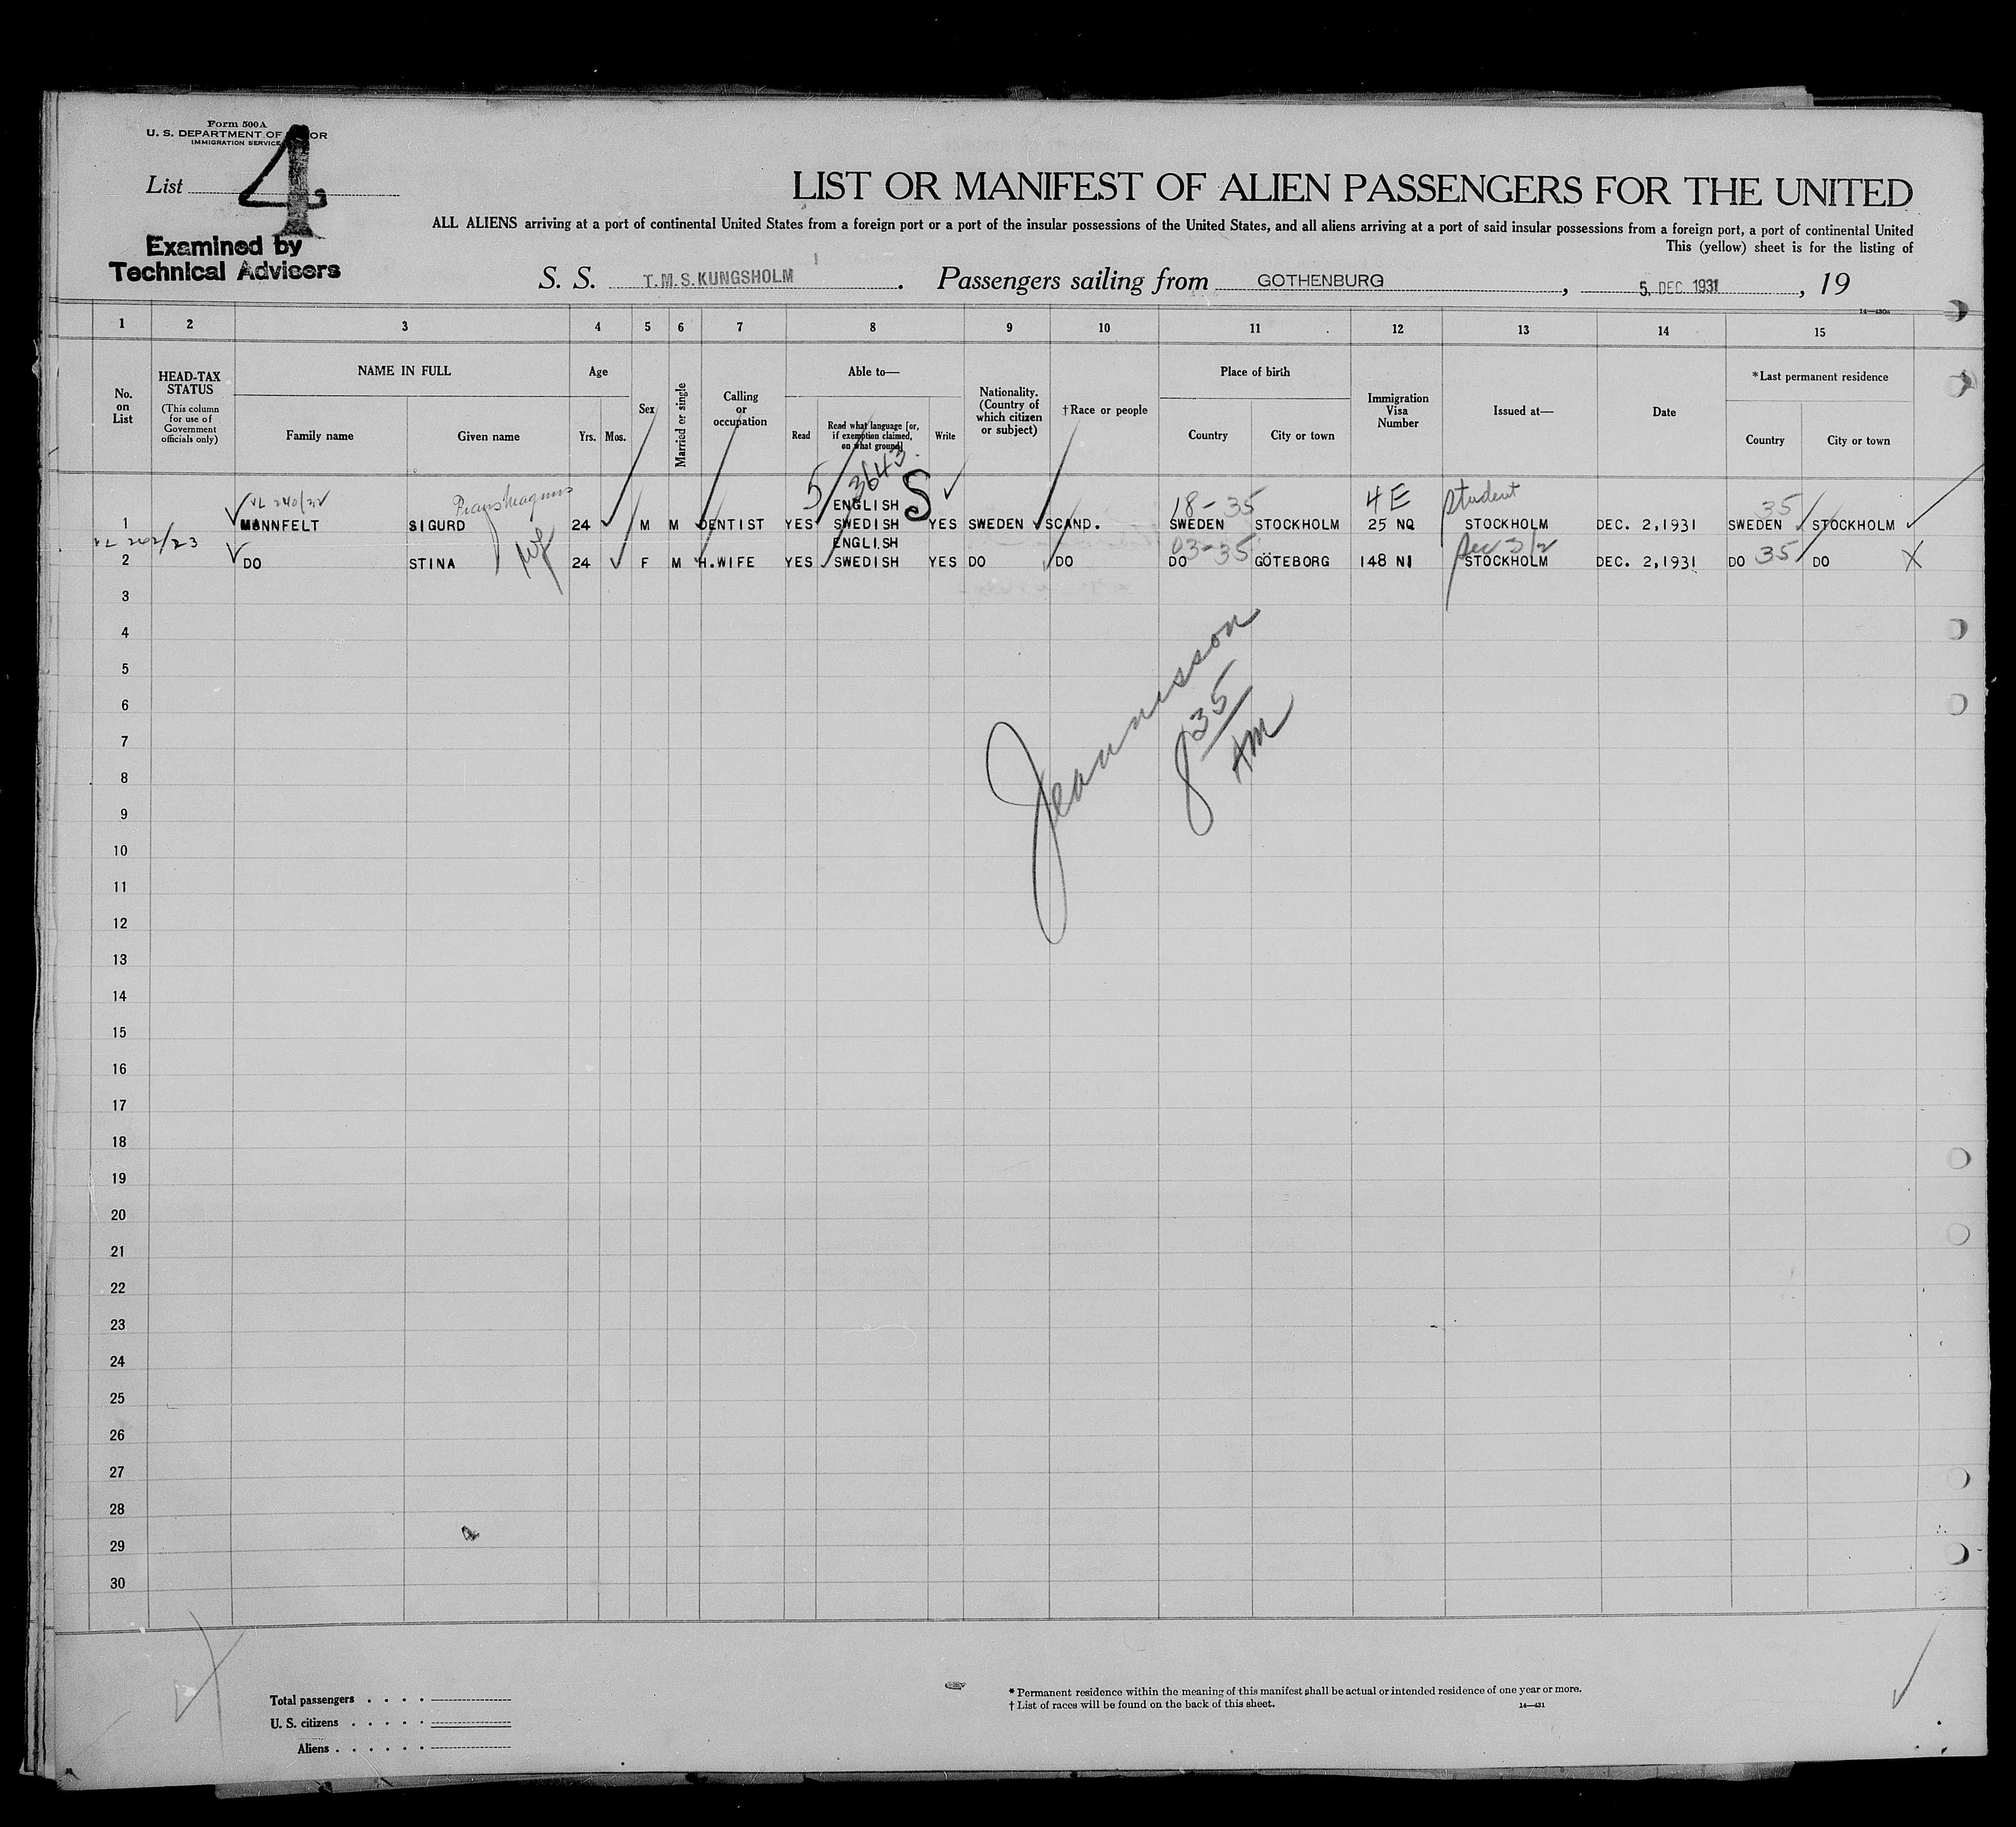 Form 500A
U. S. DEPARTMENT OF LABOR
IMMIGRATION SERVICE
List 4
Examined by
Technical Advisers
LIST OR MANIFEST OF ALIEN PASSENGERS FOR THE UNITED
ALL ALIENS arriving at a port of continental United States from a foreign port or a port of the insular possessions of the United States, and all aliens arriving at a port of said insular possessions from a foreign port, a port of continental United
This (yellow) sheet is for the listing of
S. S. T.M.S.KUNGSHOLM. Passengers sailing from GOTHENBURG, 5. DEC. 1931, 19
14—430a
1 2 3 4 5 6 7 8 9 10 11 12 13 14 15
No. on List
HEAD-TAX STATUS
(This column for use of Government officials only)
NAME IN FULL
Family name Given name
Age
Yrs. Mos.
Sex
Married or single
Calling or occupation
Able to—
Read Read what language [or, if exemption claimed, on what ground] Write
Nationality. (Country of which citizen or subject)
†Race or people
Place of birth
Country City or town
Immigration Visa Number
Issued at—
Date
*Last permanent residence
Country City or town
VL 240/32 5 3643 S 18-35 4E Student 35
ENGLISH
1 MANNFELT SIGURD 24 M M DENTIST YES SWEDISH YES SWEDEN SCAND. SWEDEN STOCKHOLM 25 NQ STOCKHOLM DEC. 2,1931 SWEDEN STOCKHOLM
wf ENGLISH 03-35 Sec 3/2
2 DO STINA 24 F M H.WIFE YES SWEDISH YES DO DO DO GÖTEBORG 148 NI STOCKHOLM DEC. 2,1931 DO 35 DO X
3
4
5
6
7
8
9
10
11
12
13
14
15
16
17
18
19
20
21
22
23
24
25
26
27
28
29
30
8 35
AM
Total passengers . . . .
U. S. citizens . . . . .
Aliens . . . . . .
* Permanent residence within the meaning of this manifest shall be actual or intended residence of one year or more.
† List of races will be found on the back of this sheet.
14—431